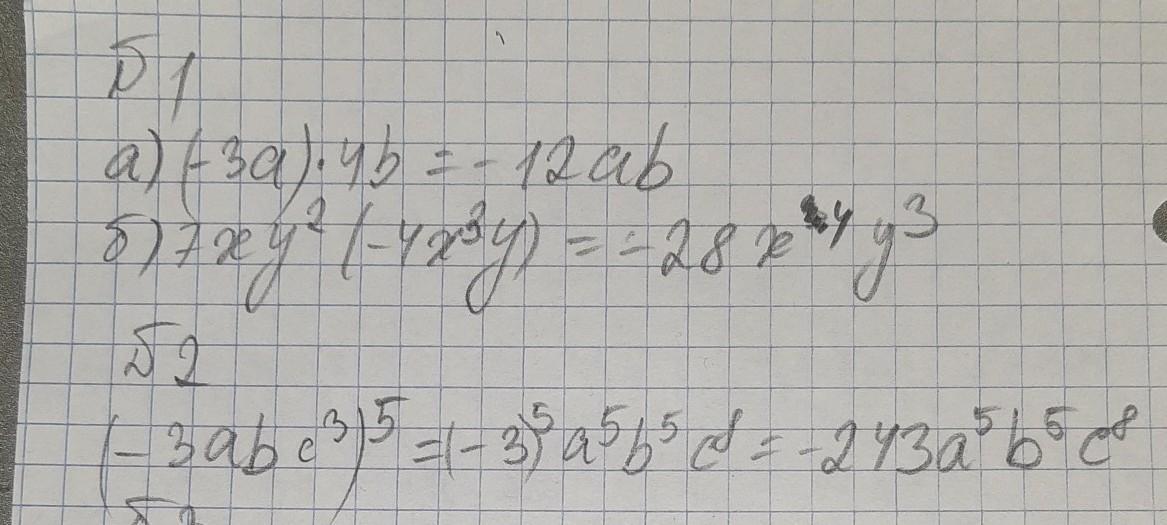 №1
а) (-3a)·4b = -12ab
б) 7xy² (-4x³y) = -28x⁴y³
№2
(-3abc³)⁵ = (-3)⁵a⁵b⁵c⁸ = -243a⁵b⁵c⁸